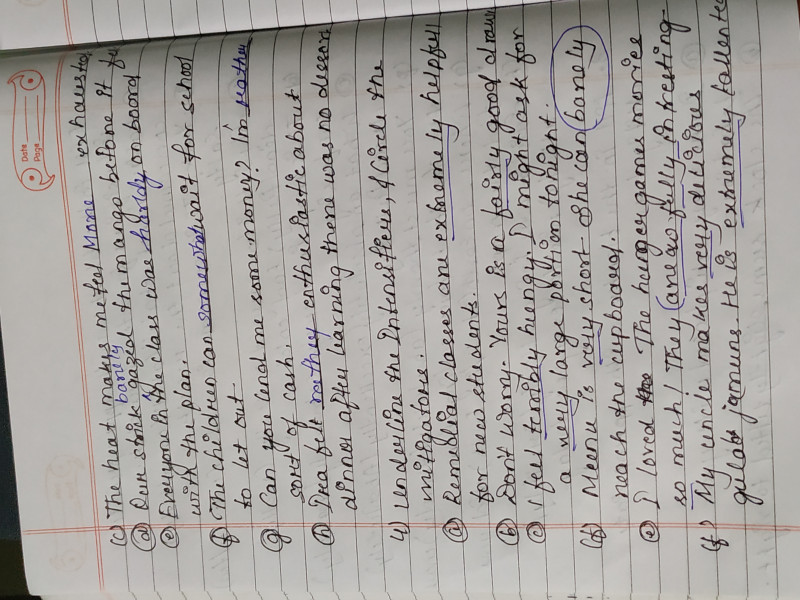 Date
Page
(c) The heat makes me feel More exhausted
(d) Our stick gazed barely the mango before it fe
(e) Everyone in the class was hardly on board
with the plan.
(f) The children can somewhat wait for school
to let out
(g) Can you lend me some money? I'm rather
sort of cash.
(h) Ira felt rather enthustastic about
dinner after larning there was no desert
4) Underline the Intensifiers, & Circle the
mitigators.
(a) Remedial classes are extremely helpfull
for new students
(b) Don't worry. Yours is a fairly good draw
(c) I feel terribly hungy. I might ask for
a very large portion tonight.
(d) Meenu is very short. She can barely
reach the cupboard.
(e) I loved the The hunger games movies
so much! They are aw fully intresting
(f) My uncle makes very delicious
gulab jamuns. He is extremely tallente